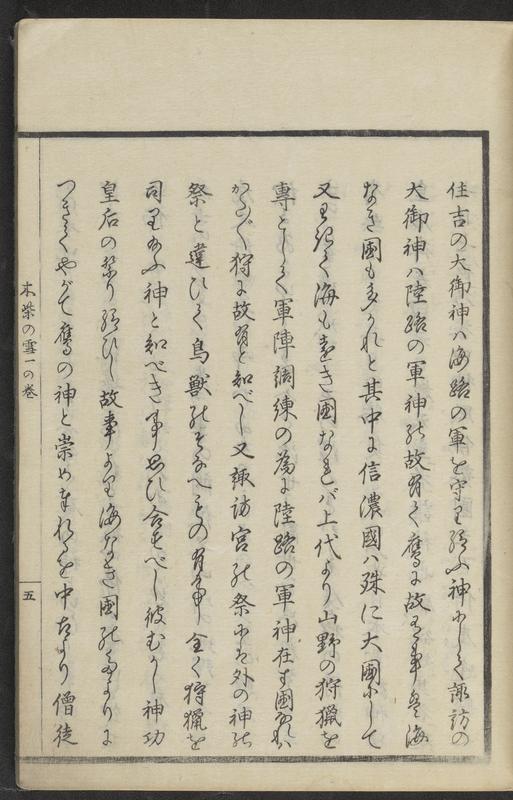 住吉の大御神ハ海路の軍を守り給ふ神にして諏訪の
大御神ハ陸路の軍神故有て鷹に故ある事は海
なき国も多かれと其中に信濃國ハ殊に大國にして
又すくれて海も遠き国なれバ上代より山野の狩獵を
専として軍陣調練の為に陸路の軍神在す国
狩に故有と知べし又諏訪宮の祭には外の神の
祭と違ひて鳥獣のそなへもの有事全く狩獵を
司り給ふ神と知べき事思ひ合すべし彼むかし神功
皇后の祭り給ひし故事より海なき国の
つきてやがて鷹の神と崇め奉れるを中古より僧徒
木栄の雪一の巻
五